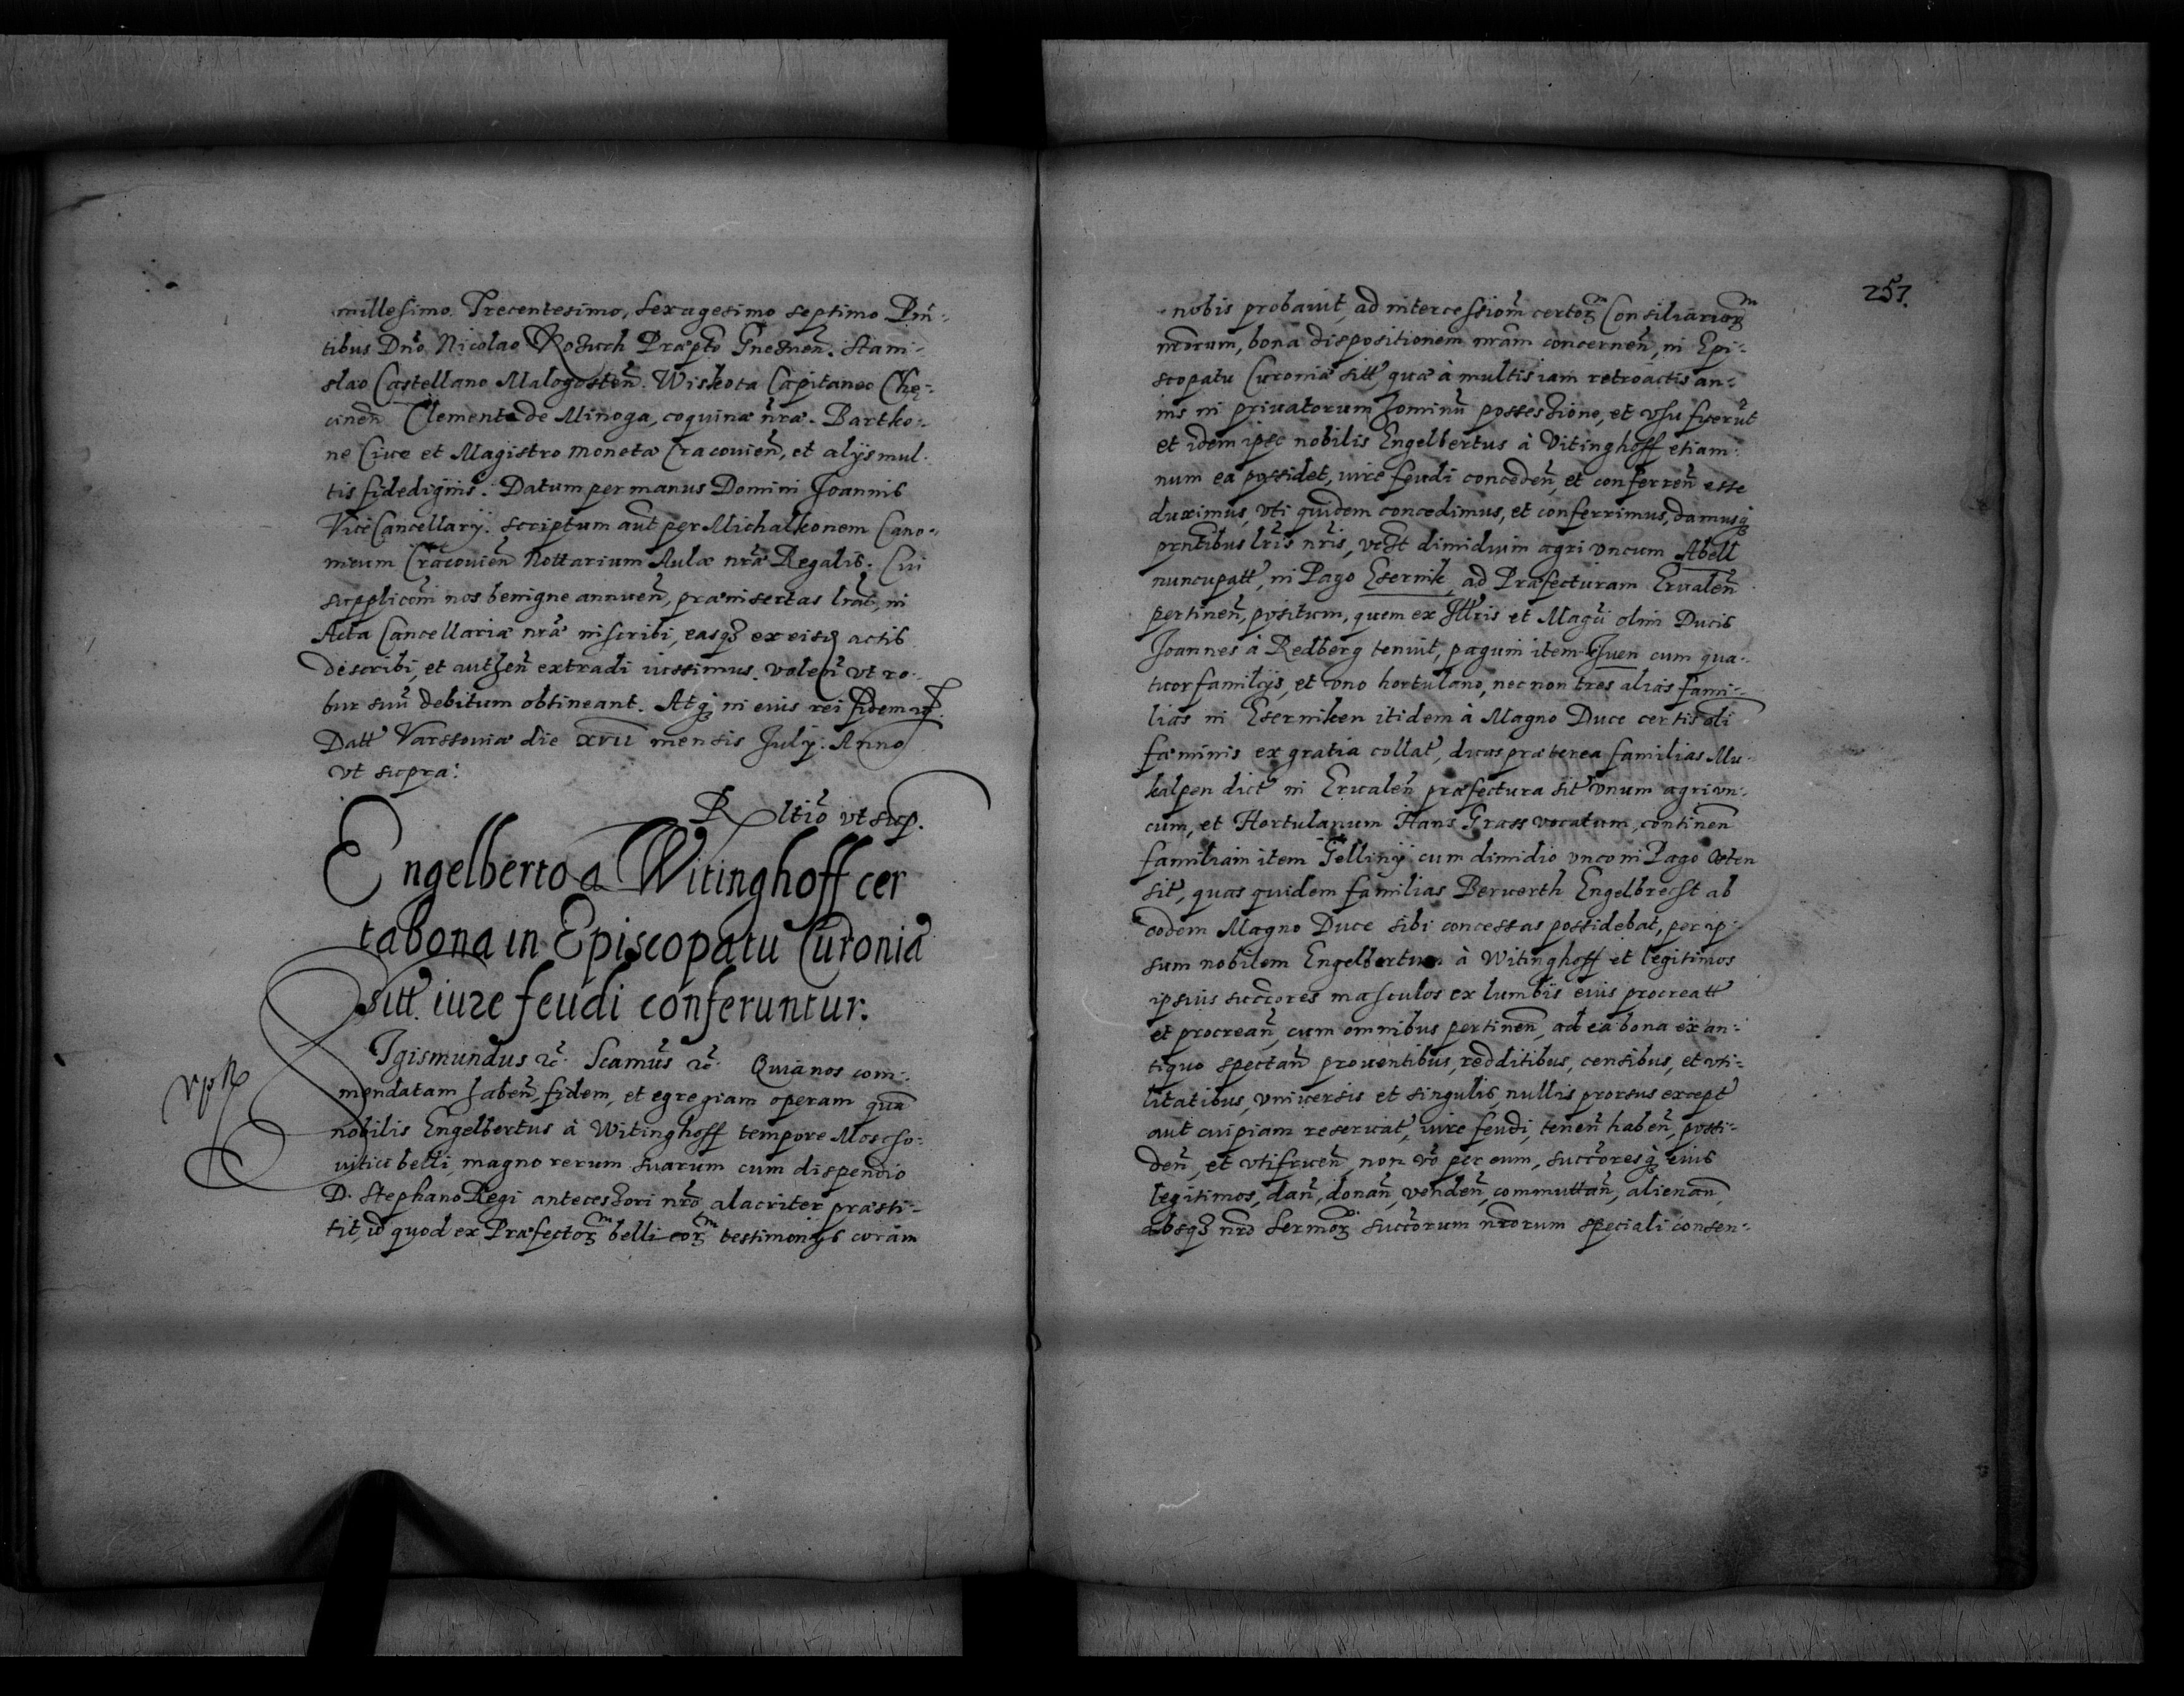 millesimo. Trecentesimo, sexagesimo septimo Pñ-
tibus Dño Nicolao Præpto Gnesneñ. Stani-
slao Castellano Malogosteñ. Wiskota Capitaneo Chę-
cineñ Clemente de Minoga, coquinæ ñræ. Bartko-
ne Ciue et Magistro monetæ Cracouieñ, et alÿs mul-
tis fidedignis. Datum per manus Domini Joannis
ViceCancellarÿ. scriptum aũt per Michalkonem Cano-
nicum Cracouieñ Nottarium Aulæ nrã Regalis. Cui
supplicoñi nos benigne annueñ, præinsertas lrãs, in
Acta Cancellariæ nrã inscribi, easq3 ex eisd actis
describi, et autheñ extradi iussimus. valeñ vt ro-
bur suũ debitum obtineant. Atq3 in eius rei fidem
Datt Varssouiæ die xvii mensis July. Anno
vt supra.
Rltiõ vt sup.
Engelberto a Witinghoff cer
ta bona in Episcopatu Curoniæ
sitt iure feudi conferuntur.
Sigismundus &c. Scamũs &c. Quia nos com-
mendatam habeñ, fidem, et egregiam operam quã
nobilis Engelbertus à Witinghoff tempore Moscho-
uitici belli, magno rerum suarum cum dispendio
D. Stephano Regi antecessori nrõ alacriter præsti-
tit, id quod ex Præfector belli eor testimonÿs coram
257.
nobis probauit, ad intercessioñ certor Consiliarior
nrõrum, bona dispositionem nrãm concerneñ, in Epi-
scopatu Curoniæ sitt, quæ à multis iam retroactis an-
nis in priuatorum hominũ possessione, et vsu fuerũt
et idem ipse nobilis Engelbertus à Vitinghoff etiam
num ea possidet, iure feudi concedeñ, et conferreñ esse
duximus, vti quidem concedimus, et conferrimus, damusq3
pñtibus lrĩs nrĩs, vcht dimidium agri vncum Abell
nuncupatt, in Pago Esernik, ad Præfecturam Erualeñ
pertineñ, positum, quem ex Illris et Magci olim Ducis
Joannes à Redberg tenuit, pagum item Iuen cum qua-
tuor familÿs, et vno hortulano, nec non tres alias fami-
lias in Eserniken itidem à Magno Duce certis oli
fæminis ex gratia collat, duas præterea familias Mu-
kalpen dict in Erualeñ præfectura sit vnum agri vn-
cum, et Hortulanum Hans Grass vocatum, contineñ
familiam item Gelliny cum dimidio vnco in Pago Vten
sit, quas quidem familias Berwerth Engelbrecht ab
eodem Magno Duce sibi concessas possidebat, per ip-
sum nobilem Engelbertum à Witinghoff et legitimos
ipsius succores masculos ex lumbis eius procreatt
et procreañ, cum omnibus pertineñ, ad ea bona ex an-
tiquo spectañ prouentibus, redditibus, censibus, et vti-
litatibus, vniuersis et singulis, nullis prorsus except
aut cuipiam reseruat, iure feudi, teneñ habeñ, possi-
deñ, et vtifrueñ, non vo per eum, succoresq3 eius
legitimos, dañ, donañ, vendeñ, commuttañ, alienañ,
absq3 nrõ Sermor succorum nrõrum speciali consen-